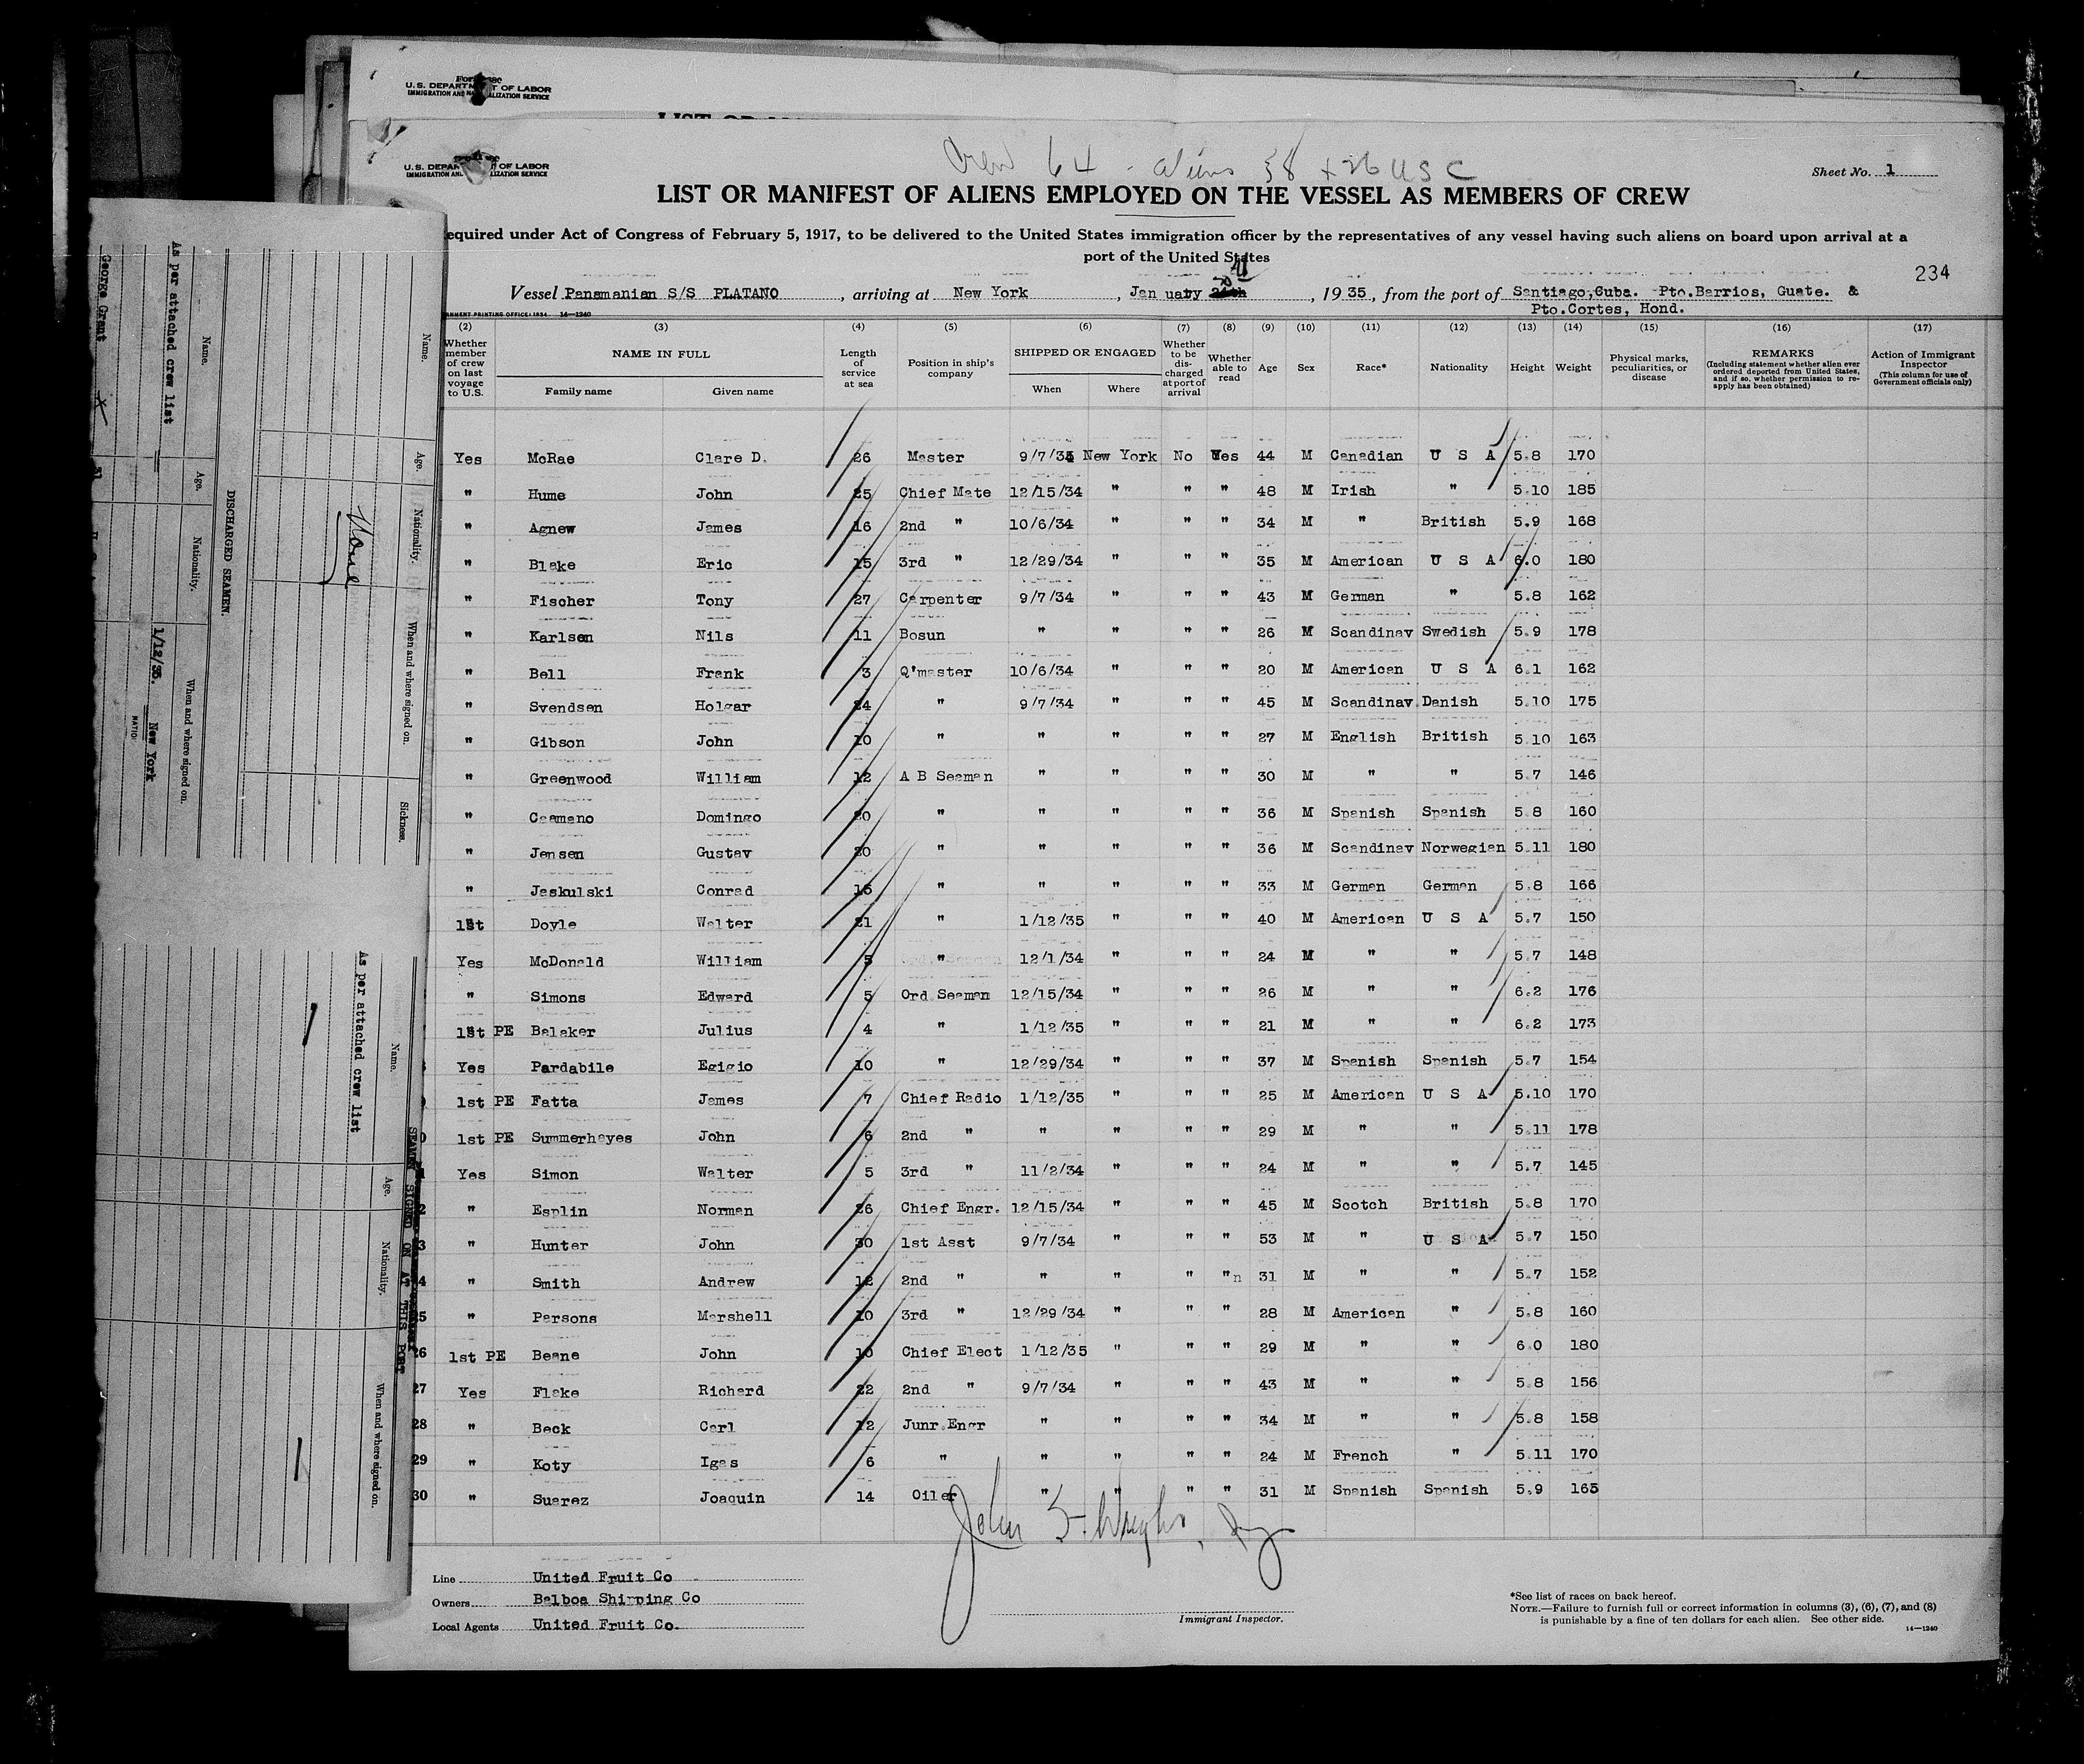 U.S. DEPARTMENT OF LABOR
IMMIGRATION AND NATURALIZATION SERVICE
U.S. DEPARTMENT OF LABOR
IMMIGRATION AND NATURALIZATION SERVICE
Crew 64 - aliens 38 + 26 USC
Sheet No. 1
LIST OR MANIFEST OF ALIENS EMPLOYED ON THE VESSEL AS MEMBERS OF CREW
equired under Act of Congress of February 5, 1917, to be delivered to the United States immigration officer by the representatives of any vessel having such aliens on board upon arrival at a
port of the United States
234
Vessel Panamanian S/S PLATANO, arriving at New York, Jan uaty, 1935, from the port of Santiago,Cuba. Pto.Barrios, Guate. &
Pto.Cortes, Hond.
(2) (3) (4) (5) (6) (7) (8) (9) (10) (11) (12) (13) (14) (15) (16) (17)
Whether member of crew on last voyage to U.S. NAME IN FULL Family name Given name Length of service at sea Position in ship's company SHIPPED OR ENGAGED When Where Whether to be discharged at port of arrival Whether able to read Age Sex Race* Nationality Height Weight Physical marks, peculiarities, or disease REMARKS (Including statement whether alien ever ordered deported from United States, and if so, whether permission to re-apply has been obtained) Action of Immigrant Inspector (This column for use of Government officials only)
Yes McRae Clare D. 26 Master 9/7/34 New York No Yes 44 M Canadian U S A 5.8 170
" Hume John 25 Chief Mate 12/15/34 " " " 48 M Irish " 5.10 185
" Agnew James 16 2nd " 10/6/34 " " " 34 M " British 5.9 168
" Blake Eric 15 3rd " 12/29/34 " " " 35 M American U S A 6.0 180
" Fischer Tony 27 Carpenter 9/7/34 " " " 43 M German " 5.8 162
" Karlsen Nils 11 Bosun " " " " 26 M Scandinav Swedish 5.9 178
" Bell Frank 3 Q'master 10/6/34 " " " 20 M American U S A 6.1 162
" Svendsen Holgar 24 " 9/7/34 " " " 45 M Scandinav. Danish 5.10 175
" Gibson John 10 " " " " " 27 M English British 5.10 163
" Greenwood William 12 A B Seaman " " " " 30 M " " 5.7 146
" Caamano Domingo 20 " " " " " 36 M Spanish Spanish 5.8 160
" Jensen Gustav 20 " " " " " 36 M Scandinav Norwegian 5.11 180
" Jaskulski Conrad 15 " " " " " 33 M German German 5.8 166
1st Doyle Walter 21 " 1/12/35 " " " 40 M American U S A 5.7 150
Yes McDonald William 5 " 12/1/34 " " " 24 M " " 5.7 148
" Simons Edward 5 Ord.Seaman 12/15/34 " " " 26 M " " 6.2 176
1st PE Balaker Julius 4 " 1/12/35 " " " 21 M " " 6.2 173
Yes Pardabile Egigio 10 " 12/29/34 " " " 37 M Spanish Spanish 5.7 154
1st PE Fatta James 7 Chief Radio 1/12/35 " " " 25 M American U S A 5.10 170
1st PE Summerhayes John 6 2nd " " " " " 29 M " " 5.11 178
Yes Simon Walter 5 3rd " 11/2/34 " " " 24 M " " 5.7 145
" Esplin Norman 26 Chief Engr. 12/15/34 " " " 45 M Scotch British 5.8 170
" Hunter John 30 1st Asst 9/7/34 " " " 53 M " U S A 5.7 150
" Smith Andrew 12 2nd " " " " "n 31 M " " 5.7 152
" Parsons Marshell 10 3rd " 12/29/34 " " " 28 M American " 5.8 160
26 1st PE Beane John 10 Chief Elect 1/12/35 " " " 29 M " " 6.0 180
27 Yes Flake Richard 22 2nd " 9/7/34 " " " 43 M " " 5.8 156
28 " Beck Carl 12 Junr.Engr " " " " 34 M " " 5.8 158
29 " Koty Igas 6 " " " " " 24 M French " 5.11 170
30 " Suarez Joaquin 14 Oiler " " " " 31 M Spanish Spanish 5.9 165
Line United Fruit Co
Owners Balboa Shipping Co
Local Agents United Fruit Co.
Immigrant Inspector.
*See list of races on back hereof.
NOTE.—Failure to furnish full or correct information in columns (3), (6), (7), and (8)
is punishable by a fine of ten dollars for each alien. See other side.
14—1240
Name. Age. Nationality. When and where signed on. Sickness.
None
DISCHARGED SEAMEN.
Name. Age. Nationality. When and where signed on.
As per attached crew list
1/12/35. New York
George Grant
SEAMEN SIGNED ON AT THIS PORT
Name. Age. Nationality. When and where signed on.
As per attached crew list